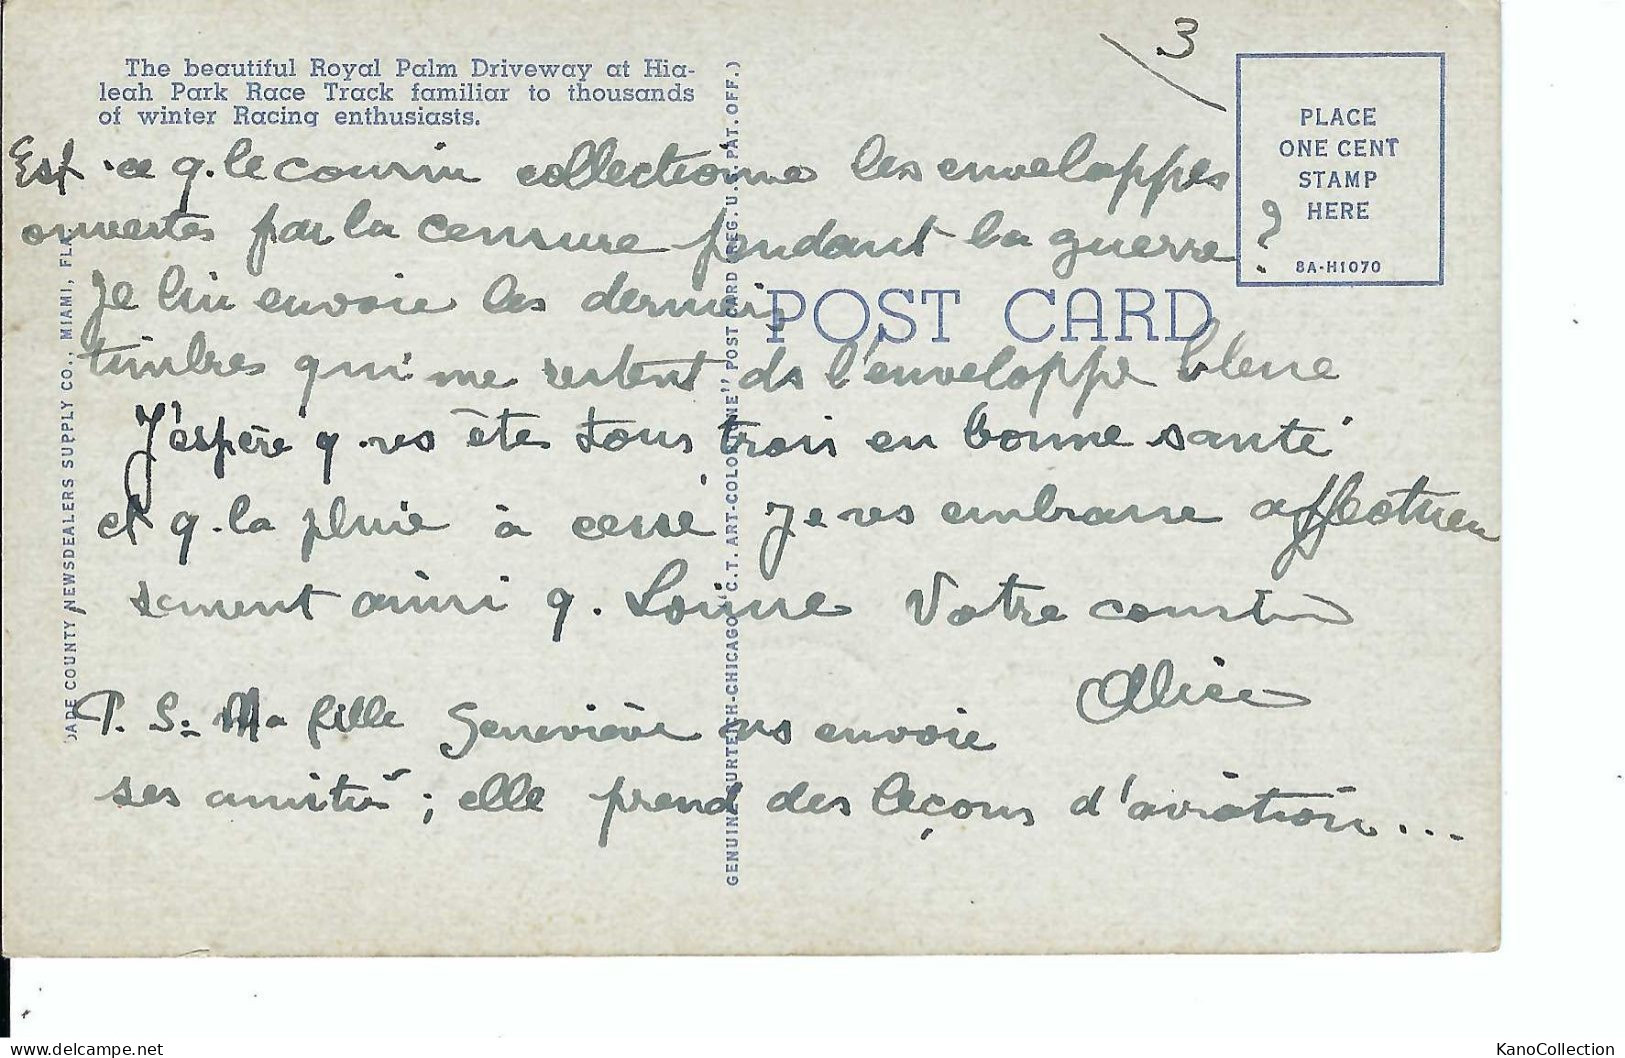 3
The beautiful Royal Palm Driveway at Hia-
leah Park Race Track familiar to thousands
of winter Racing enthusiasts.
PLACE
ONE CENT
STAMP
HERE
8A-H1070
POST CARD
Est-ce q. le cousin collectionne les enveloppes
ouvertes par la censure pendant la guerre ?
Je lui envoie les derniers
timbres qui me restent ds l'enveloppe bleue
J'espère q. vs êtes tous trois en bonne santé
et q. la pluie à cessé Je vs embrasse affectueu
sement ainsi q. Louise Votre cousine
Alice
P. S. Ma fille Geneviève vs envoie
ses amitiés ; elle prend des leçons d'aviation...
DADE COUNTY NEWSDEALERS SUPPLY CO., MIAMI, FLA.
GENUINE CURTEICH-CHICAGO "C.T. ART-COLORTONE" POST CARD (REG. U.S. PAT. OFF.)
delcampe.net
KanoCollection